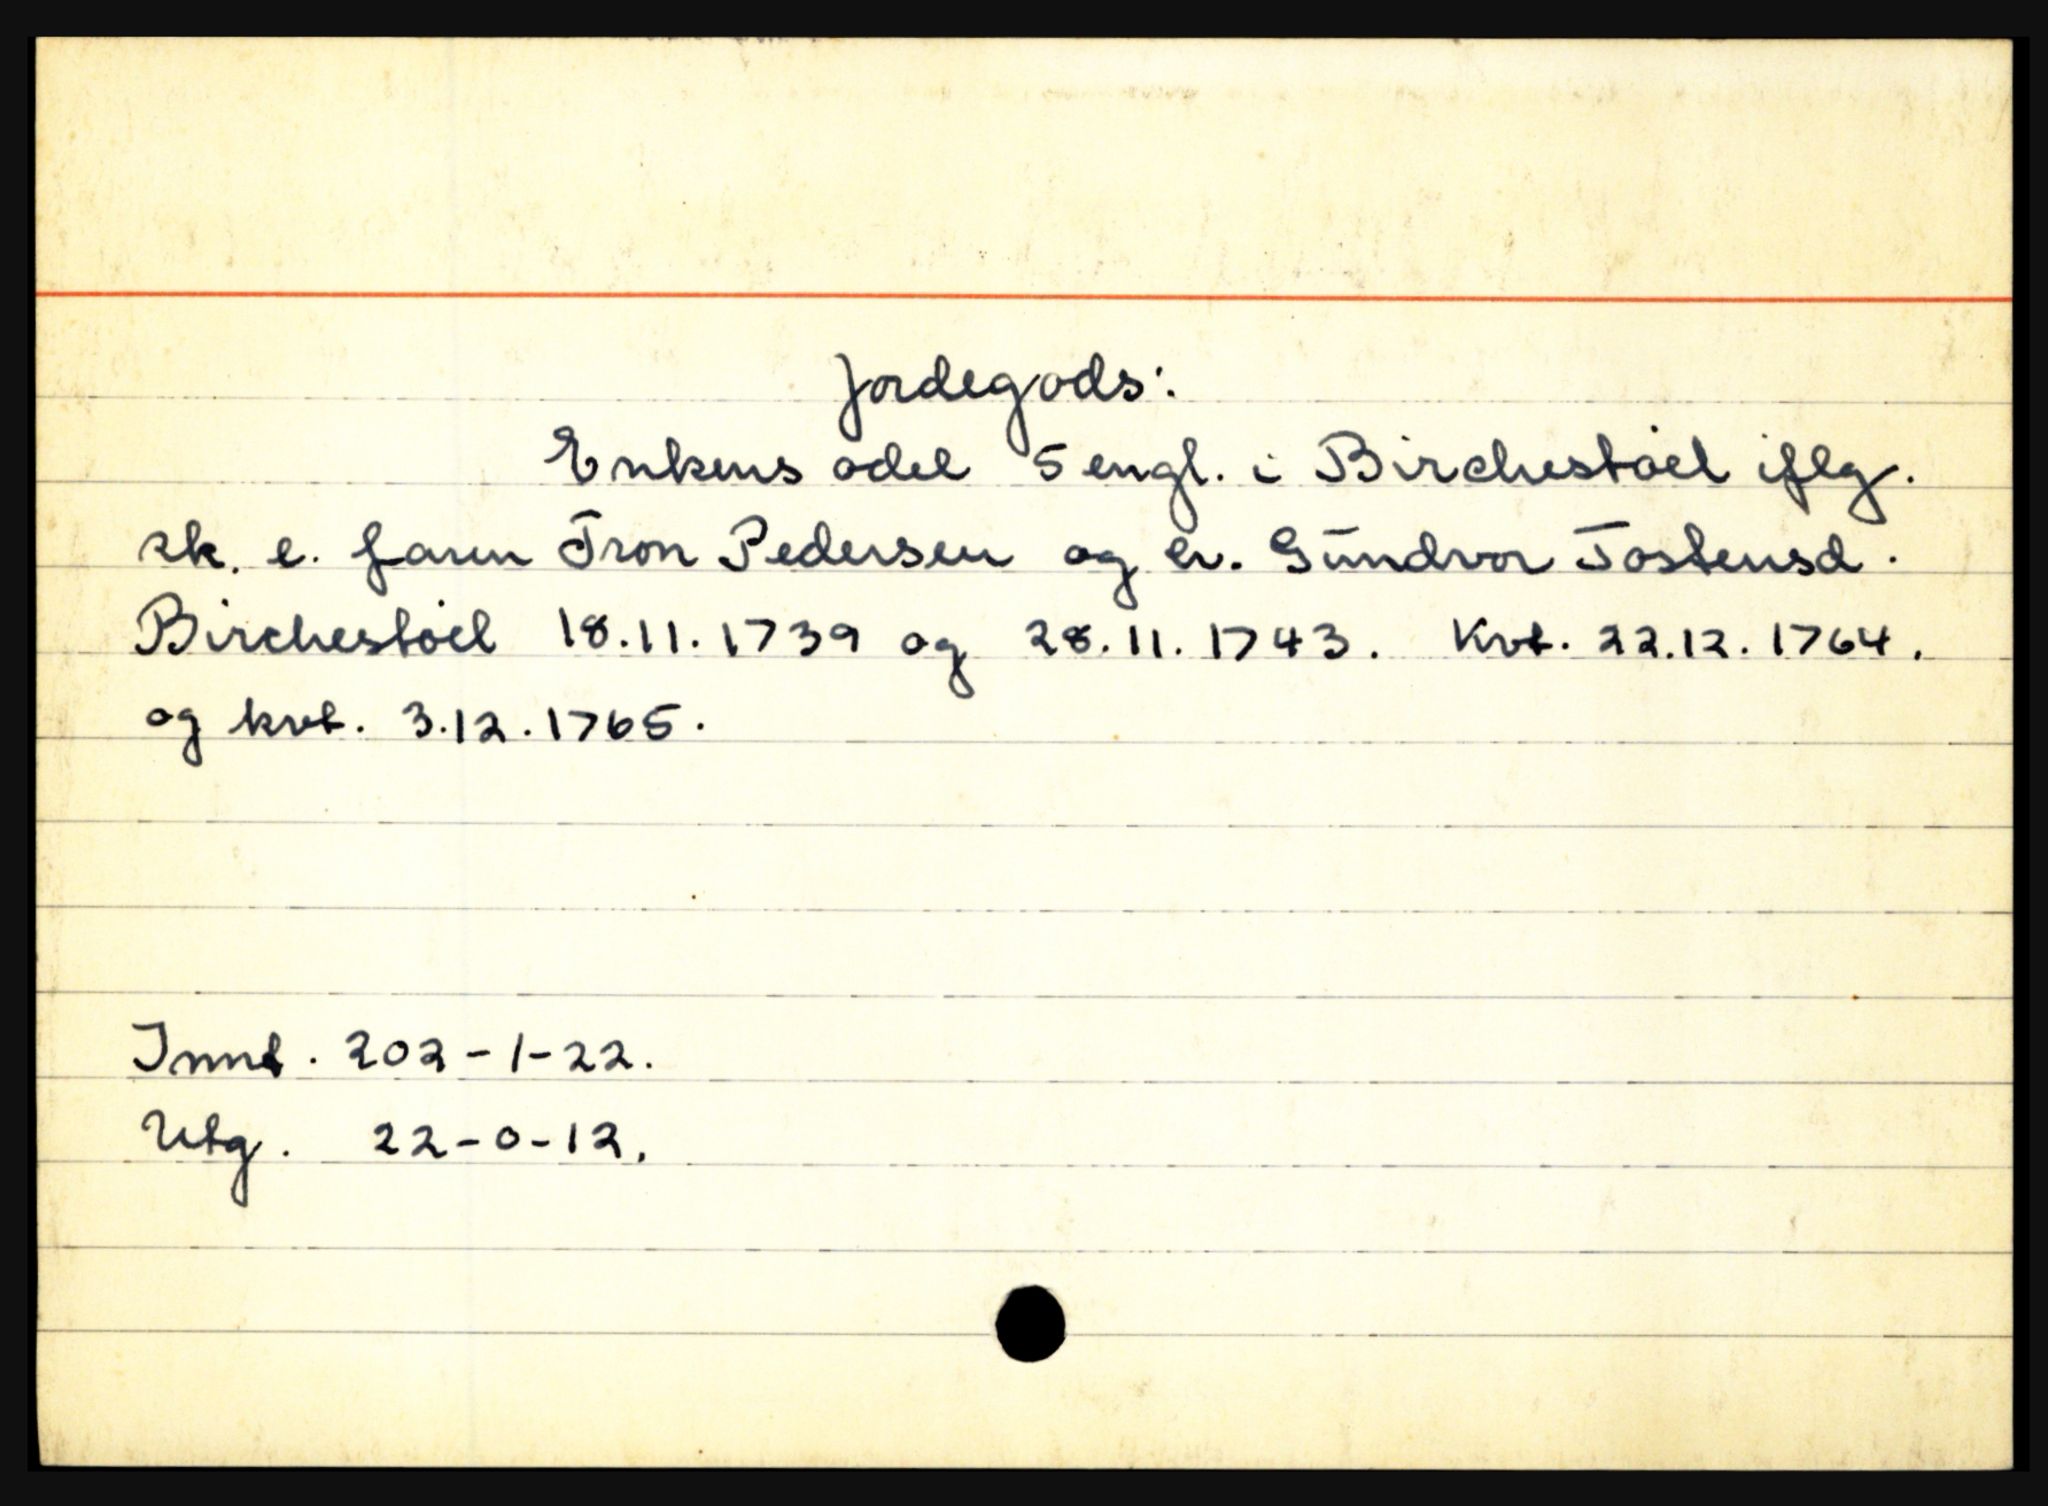 Jordegods:
Enkens odel 5 engl. i Birchestöel iflg.
sk. e. faren Tron Pedersen og ev. Gundvor Tostensd.
Birchestöel 18.11.1739 og 28.11.1743. Kvt. 22.12.1764.
og kvt. 3.12.1765.
Innt. 202-1-22.
Utg. 22-0-12.